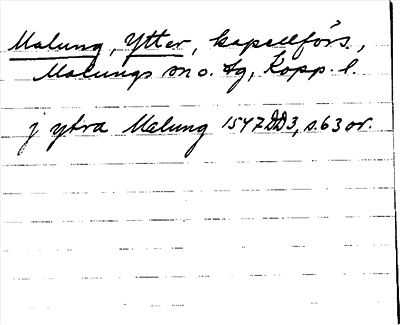 Malung, Ytter, kapellförs.,
Malungs sn o. tg, Kopp. l.
j ytra Malung 1547 DD3, s. 63 or.